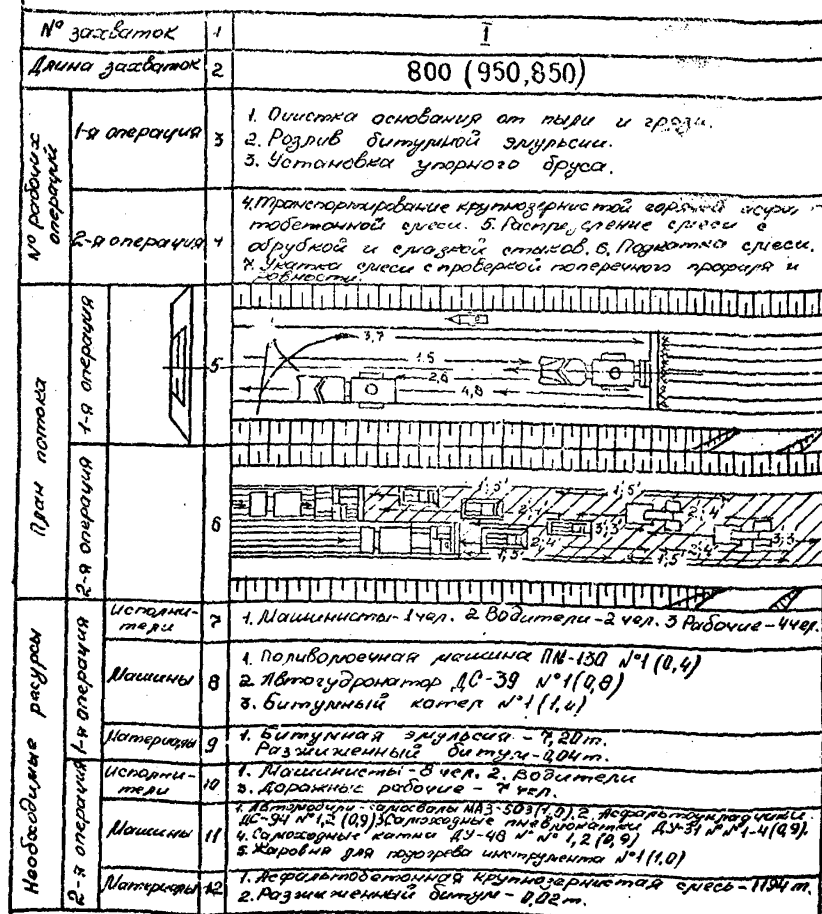 № захваток 1 I
Длина захваток 2 800 (950,850)
№ рабочих операций
1-я операция 3
1. Очистка основания от пыли и грязи.
2. Розлив битумной эмульсии.
3. Установка упорного бруса.
2-я операция 4
4. Транспортирование крупнозернистой горячей асфаль
тобетонной смеси. 5. Распределение смеси с
обрубкой и смазкой стыков. 6. Подкатка смеси.
7. Укатка смеси с проверкой поперечного профиля и
ровности.
План потока
1-я операция 5
3,7
1.5
2,6
4,8
2-я операция 6
1,5' 1,5'
2,4' 2,4'
3,3' 3,3
1,5' 2,4' 1,5' 2,4'
Необходимые ресурсы
1-я операция
Исполни-
тели 7 1. Машинисты-1 чел. 2 Водители-2 чел. 3 Рабочие-4 чел.
Машины 8
1. Поливомоечная машина ПМ-130 №1 (0,4)
2. Автогудронатор ДС-39 №1 (0,8)
3. Битумный котел №1
Материалы 9 1. Битумная эмульсия - 7,20т.
Разжиженный битум-0,04т.
2-я операция
Исполни-
тели 10 1. Машинисты-8 чел. 2. Водители
3. Дорожные рабочие - 7 чел.
Машины 11
1. Автомобили-самосвалы МАЗ-503 (1,0). 2. Асфальтоукладчики
ДС-94 №1,2 (0,9) 3 Самоходные пневмокатки ДУ-31 №№1-4 (0,9).
4. Самоходные катки ДУ-48 №№ 1,2 (0,9)
5. Жаровня для подогрева инструмента №1 (1,0)
Материалы 12 1. Асфальтобетонная крупнозернистая смесь-1194 т.
2. Разжиженный битум - 0,02т.